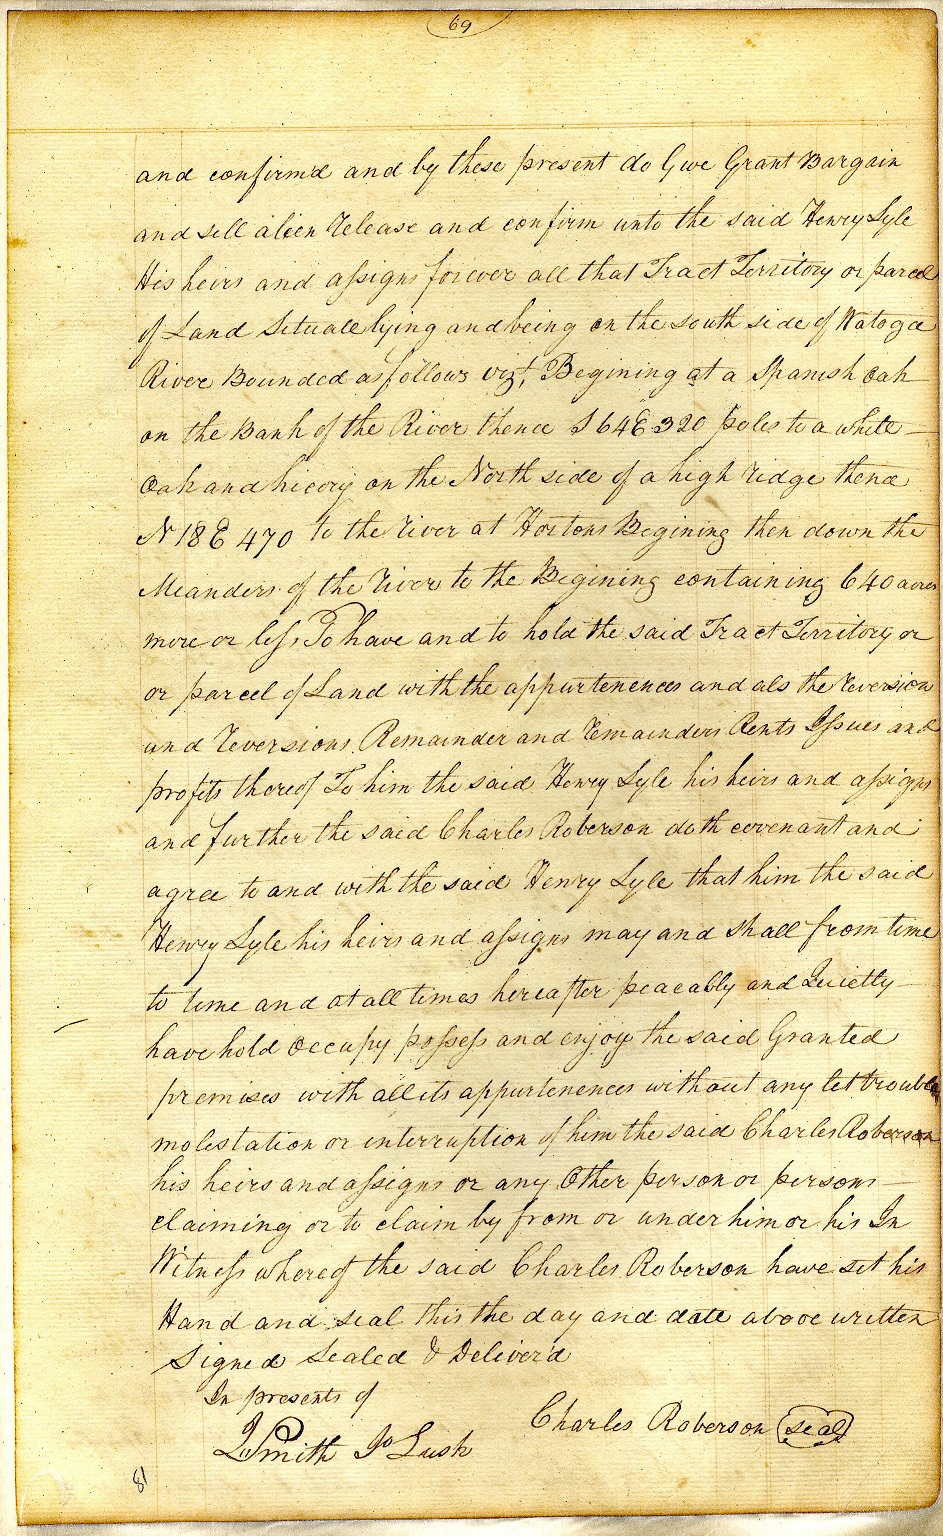 69
and confirmd and by these present do Give Grant Bargain
and sell alien release and confirm unto the said Henry Lyle
His heirs and assigns forever all that Tract Territory or parcel
of Land Situate lying and being on the south side of Watoga
River Bounded as follows vizt, Begining at a Spanish Oak
on the Bank of the River thence S 64 E 320 poles to a white
Oak and hicory on the North side of a high ridge thence
N 18 E 470 to the river at Hortons Begining then down the
Meanders of the river to the Begining containing 640 acres
more or less To have and to hold the said Tract Territory or
or parcel of Land with the appurtenences and als the reversion
and reversions Remainder and remainders Rents Issues and
profits thereof To him the said Henry Lyle his heirs and assigns
and further the said Charles Roberson doth covenant and
agree to and with the said Henry Lyle that him the said
Henry Lyle his heirs and assigns may and shall from time
to time and at all times hereafter peaeably and Quietly
have hold occupy possess and enjoy the said Granted
premises with all its appurtenences without any let trouble
molestation or interruption of him the said Charles Roberson
his heirs and assigns or any Other person or persons
claiming or to claim by from or under him or his In
Witness whereof the said Charles Roberson have set his
Hand and seal this the day and date above written
Signed Sealed & Deliver'd
In presents of
Charles Roberson seal
J Smith Jo Lusk
81